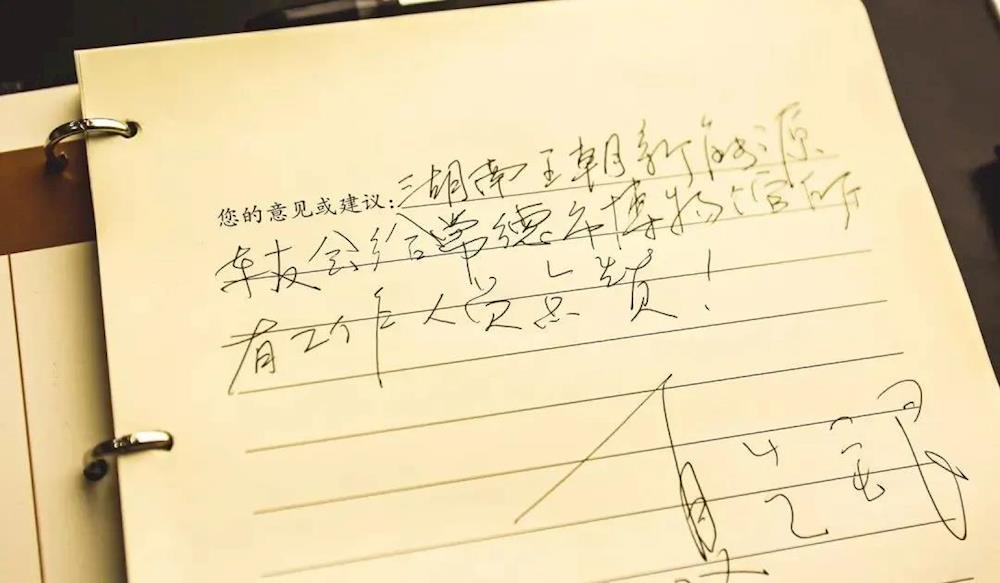 您的意见或建议:湖南王朝新能源
车友会给常德市博物馆所
有工作人员点赞!